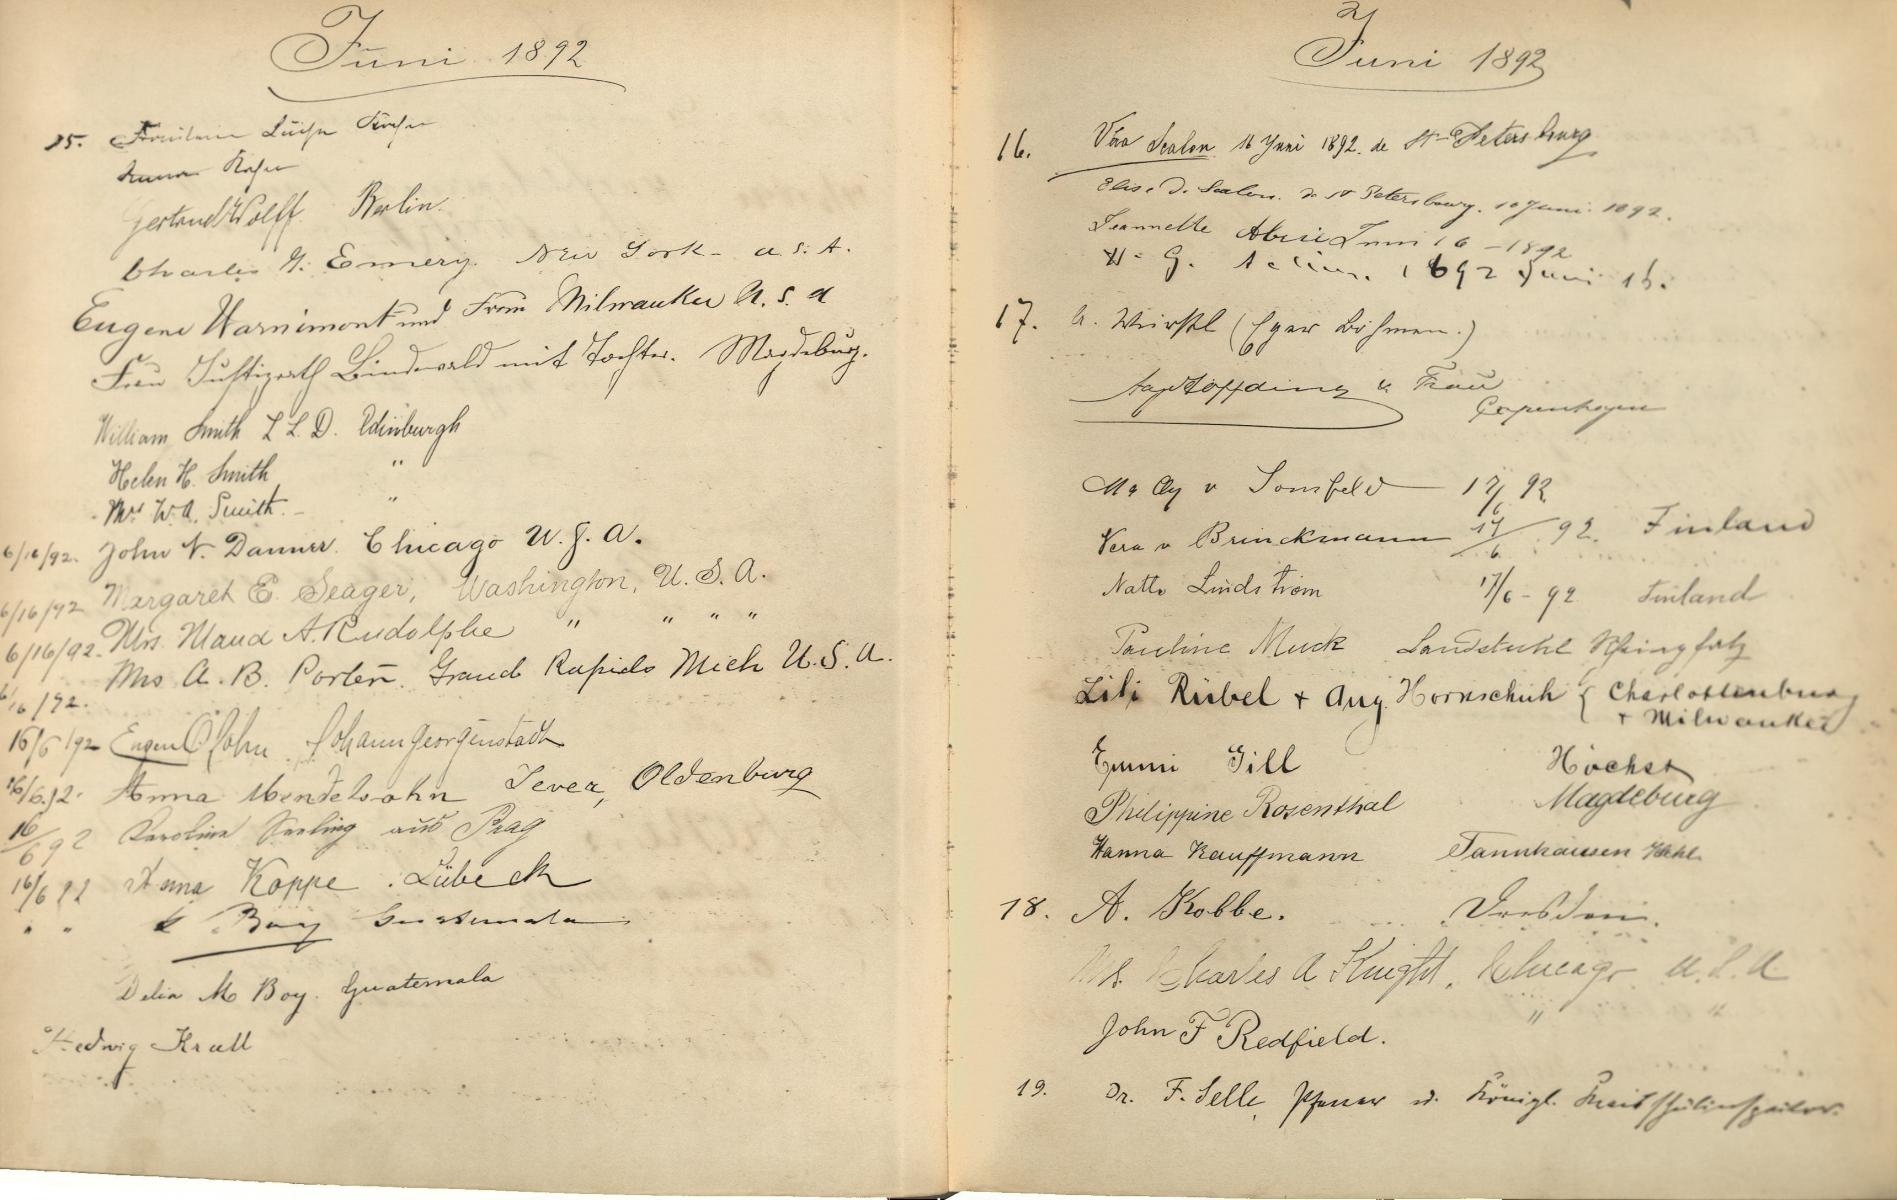 Juni 1892
15. Fräulein Luise
Gertrud Wolff. Berlin.
Charles G. Emery. New York - U.S.A.
Eugene Warnimont und Frau Milwaukee U.S.A
Frau Justizrath Lindewald mit Tochter. Magdeburg.
William Smith L.L.D. Edinburgh
Helen H. Smith "
Mrs W.A. Smith. "
6/16/92. John N. Danner. Chicago U.S.A.
6/16/92 Margaret E. Seager, Washington, U.S.A.
6/16/92. Mrs. Maud A. Rudolphe " " " "
6/16/92. Mrs A. B. Porter. Grand Rapids Mich U.S.A.
16/6/92 Eugen Johanngeorgenstadt
16/6.92. Anna Mendelsohn Jever, Oldenburg
16/6 92 Karolina aus Prag
16/6 92 Anna Koppe. Lübeck
" " Boy Guatemala
Delia M Boy. Guatemala
Hedwig Krull
Juni 1892
16. Vera Scalon 16 Juni 1892. de St Petersburg
Elise d. Scalon. de St Petersbourg. 16 Juni. 1892.
Jeannette Juni 16 - 1892
W. G. 1892 Juni 16.
17. A. (Eger Böhmen.)
Aage Höffding u. Frau
Copenhagen
v Sonsfeld 17/6 92
Vera v Brinckmann 17/6 92. Finland
Lindström 17/6 - 92 Finland
Pauline Muck Landstuhl Rheinpfalz
Lili Rübel + Aug. Hornschuh { Charlottenburg
+ Milwaukee
Emmi Gill Höchst
Philippine Rosenthal Magdeburg
Hanna Kauffmann Tannhausen
18. A. Kobbe. Dresden.
Mrs. Charles A Knight, Chicago U.S.A
John F Redfield. " "
19. Dr. F. Selle, Pfarrer u. Königl. Kreisschulinspektor.